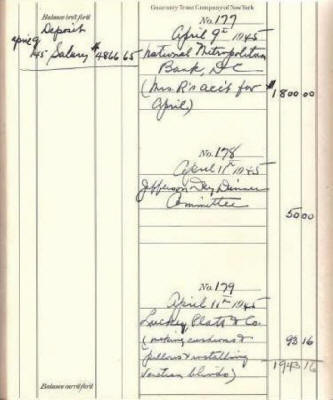 Guaranty Trust Company of New York
Balance bro't for'd
Deposit
April 9
'45 Salary $4866 65
No. 177
April 9th 1945
National Metropolitan
Bank, D C
(Mrs. R's acc't for
April)
$1,800.00
No. 178
April 11th 1945
Jefferson Day Dinner
Committee
50 00
No. 179
April 11th 1945
Luckey Platt & Co.
(making cushions &
pillows & installing
Venetian blinds)
93 16
1943 16
Balance carri'd for'd